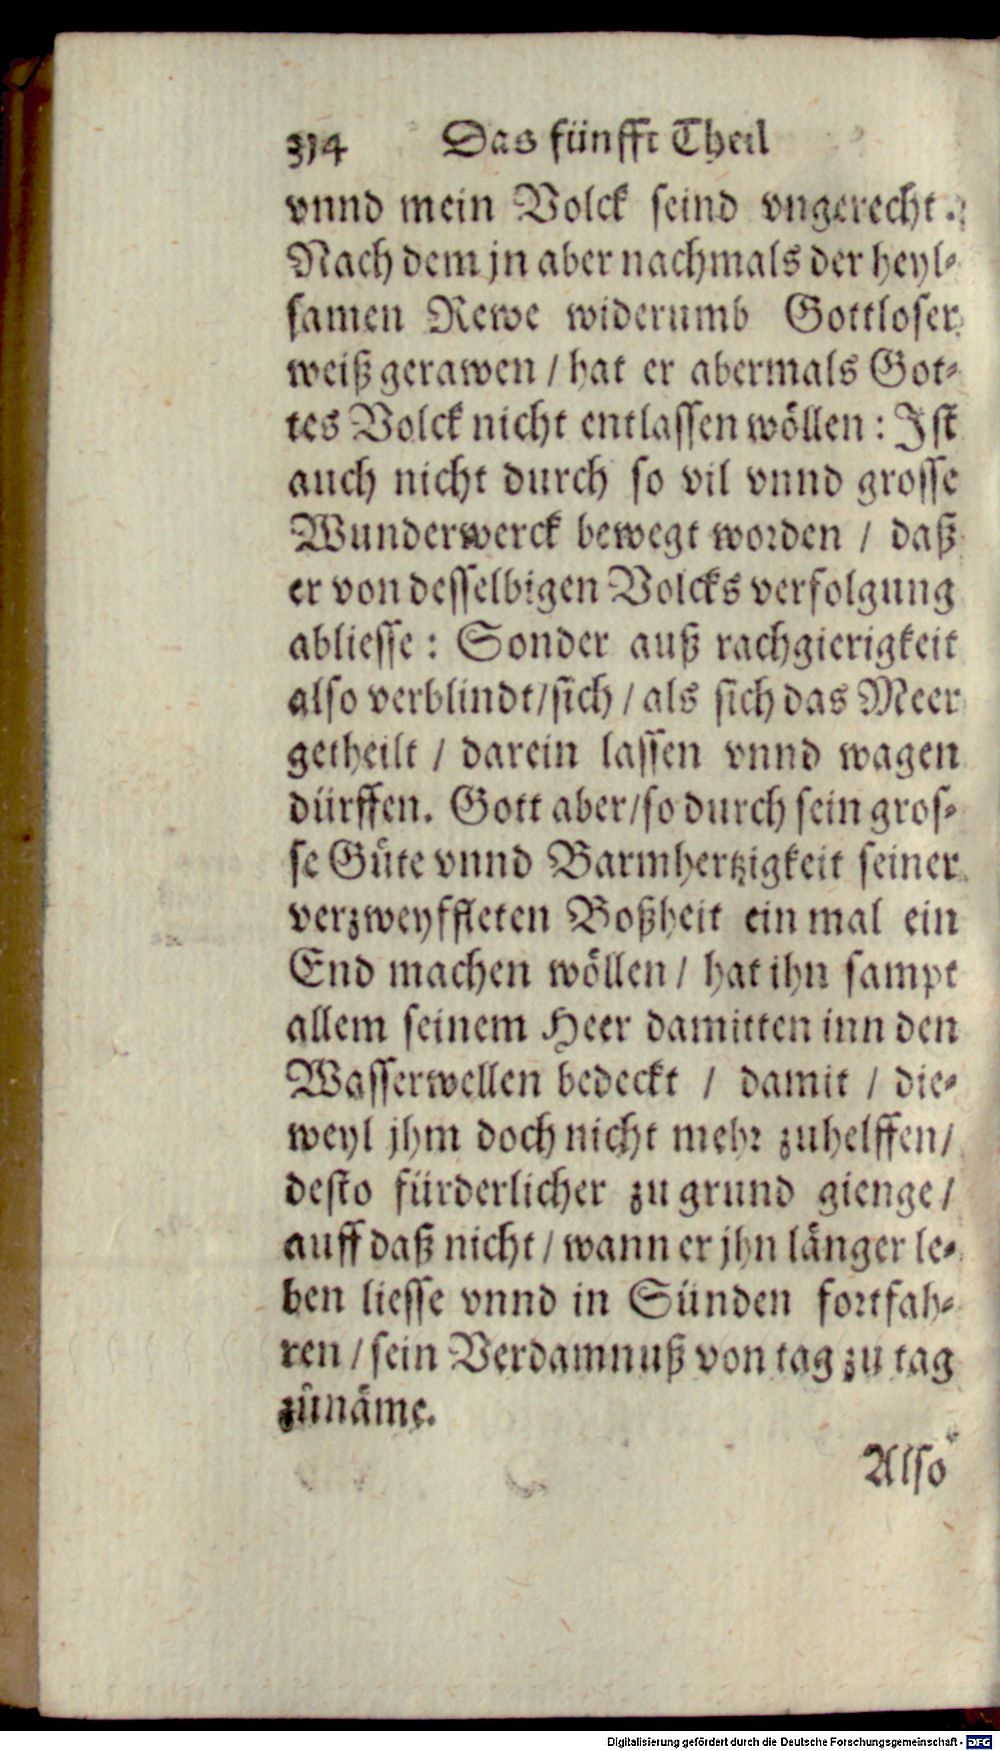 314 Das fünfft Theil
vnnd mein Volck seind vngerecht.
Nach dem jn aber nachmals der heyl-
samen Rewe widerumb Gottloser
weiß gerawen / hat er abermals Got-
tes Volck nicht entlassen wöllen: Ist
auch nicht durch so vil vnnd grosse
Wunderwerck bewegt worden / daß
er von desselbigen Volcks verfolgung
abliesse: Sonder auß rachgierigkeit
also verblindt/sich / als sich das Meer
getheilt / darein lassen vnnd wagen
dürffen. Gott aber/so durch sein gros-
se Gůte vnnd Barmhertzigkeit seiner
verzweyffleten Boßheit ein mal ein
End machen wöllen / hat ihn sampt
allem seinem Heer damitten inn den
Wasserwellen bedeckt / damit / die-
weyl jhm doch nicht mehr zuhelffen/
desto fürderlicher zu grund gienge/
auff daß nicht / wann er jhn länger le-
ben liesse vnnd in Sünden fortfah-
ren / sein Verdamnuß von tag zu tag
zůnäme.
Also
Digitalisierung gefördert durch die Deutsche Forschungsgemeinschaft - DFG